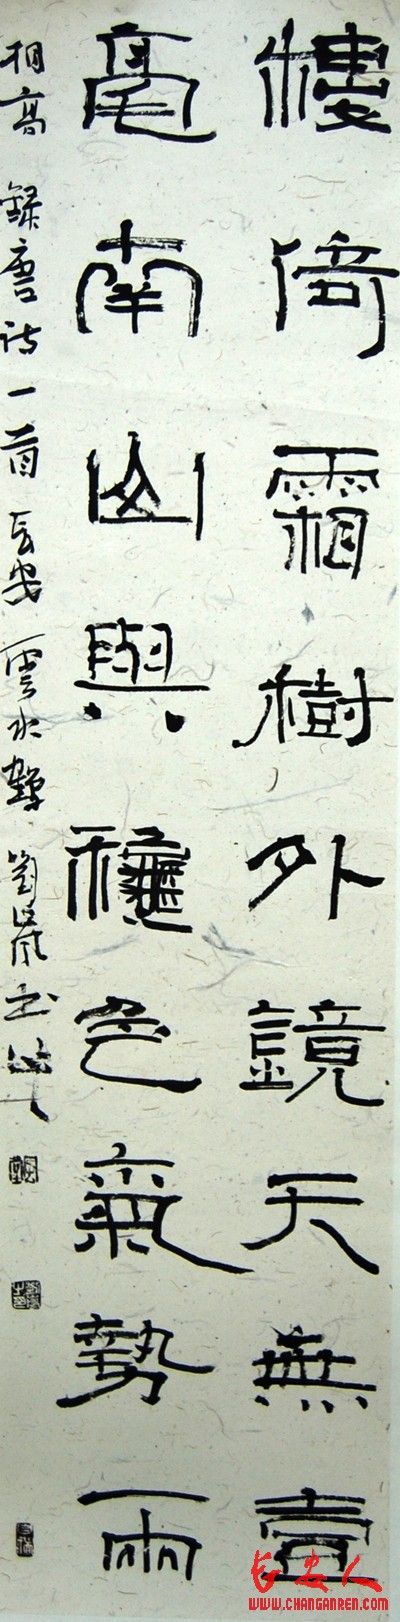 樓倚霜樹外鏡天無壹
毫南山與龝色氣勢兩
相高 錄唐诗一首 長安 雲水 劉 書
长安人
WWW.CHANGANREN.COM